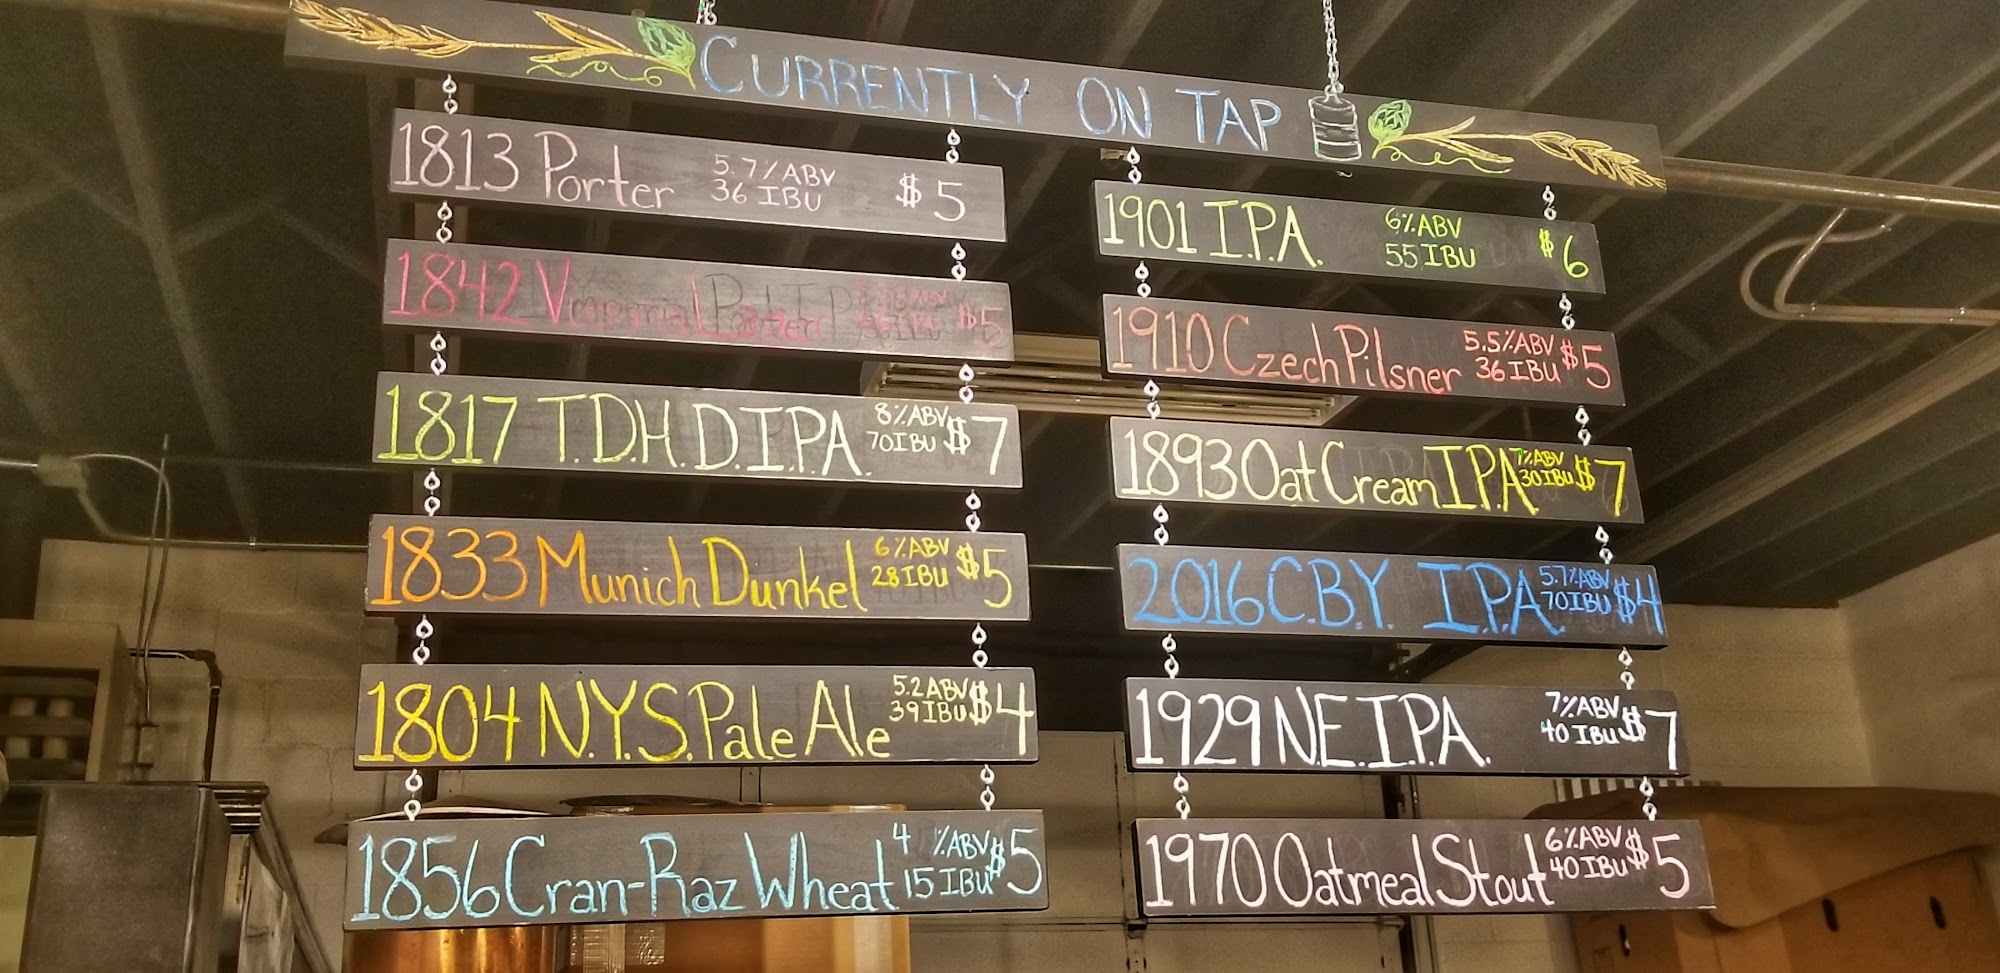 CURRENTLY ON TAP
1813 Porter 5.7% ABV 36 IBU $5
1842 $5
1817 T.D.H. D.I.P.A. 8% ABV 70 IBU $7
1833 Munich Dunkel 6% ABV 28 IBU $5
1804 N.Y.S. Pale Ale 5.2 ABV 39 IBU $4
1856 Cran-Raz Wheat 4 % ABV 15 IBU $5
1901 I.P.A. 6% ABV 55 IBU $6
1910 Czech Pilsner 5.5% ABV 36 IBU $5
1893 Oat Cream I.P.A 7% ABV 30 IBU $7
2016 C.B.Y. I.P.A. 5.7% ABV 70 IBU $4
1929 N.E.I.P.A. 7% ABV 40 IBU $7
1970 Oatmeal Stout 6% ABV 40 IBU $5